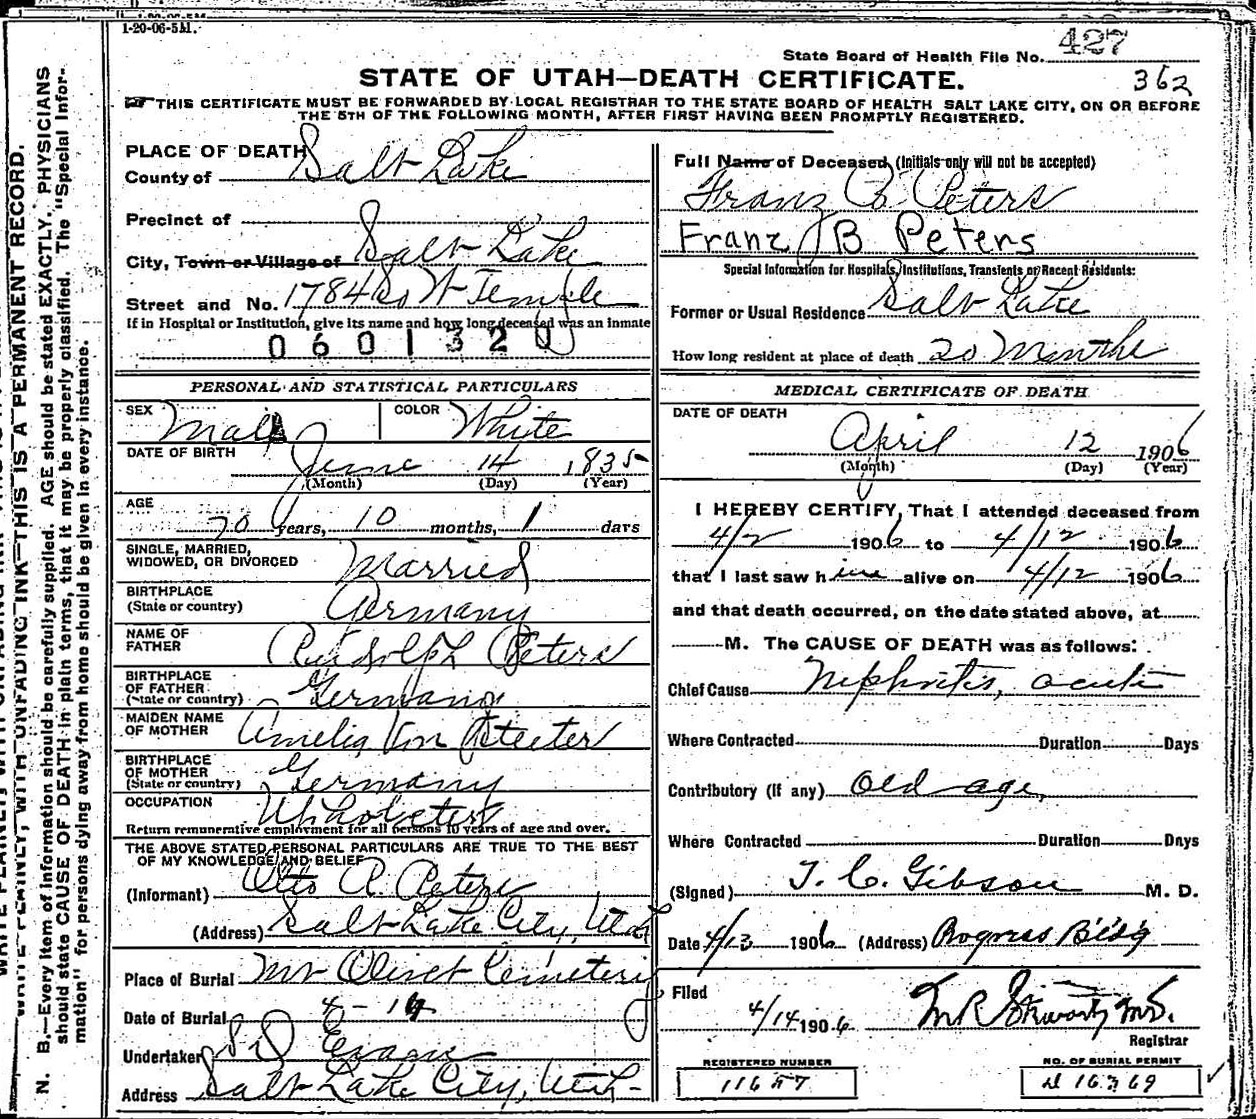 1-20-06-5M.
State Board of Health File No. 427
STATE OF UTAH—DEATH CERTIFICATE.
362
THIS CERTIFICATE MUST BE FORWARDED BY LOCAL REGISTRAR TO THE STATE BOARD OF HEALTH SALT LAKE CITY, ON OR BEFORE
THE 5TH OF THE FOLLOWING MONTH, AFTER FIRST HAVING BEEN PROMPTLY REGISTERED.
PLACE OF DEATH
County of Salt Lake
Precinct of
City, Town or Village of Salt Lake
Street and No. 1784 So W Temple
If in Hospital or Institution, give its name and how long deceased was an inmate
0601320
Full Name of Deceased, (Initials only will not be accepted)
Franz B Peters
Franz B Peters
Special Information for Hospitals, Institutions, Transients or Recent Residents:
Former or Usual Residence Salt Lake
How long resident at place of death 20 Months
PERSONAL AND STATISTICAL PARTICULARS
SEX Male COLOR White
DATE OF BIRTH June 14 1835
(Month) (Day) (Year)
AGE 70 years, 10 months, 1 days
SINGLE, MARRIED,
WIDOWED, OR DIVORCED Married
BIRTHPLACE
(State or country) Germany
NAME OF
FATHER Rudolph Peters
BIRTHPLACE
OF FATHER
(State or country) Germany
MAIDEN NAME
OF MOTHER Amelia Von
BIRTHPLACE
OF MOTHER
(State or country) Germany
OCCUPATION Upholster
Return remunerative employment for all persons 10 years of age and over.
THE ABOVE STATED PERSONAL PARTICULARS ARE TRUE TO THE BEST
OF MY KNOWLEDGE AND BELIEF
(Informant) Otto R. Peters
(Address) Salt Lake City, Utah
Place of Burial Mt Olivet Cemetery
Date of Burial 4-14
Undertaker S D Evans
Address Salt Lake City, Utah
MEDICAL CERTIFICATE OF DEATH
DATE OF DEATH
April 12 1906
(Month) (Day) (Year)
I HEREBY CERTIFY, That I attended deceased from
4/2 1906 to 4/12 1906
that I last saw him alive on 4/12 1906
and that death occurred, on the date stated above, at
M. The CAUSE OF DEATH was as follows:
Chief Cause Nephritis, acute
Where Contracted Duration Days
Contributory (If any) Old age,
Where Contracted Duration Days
(Signed) T. C. Gibson M. D.
Date 4/13 1906 (Address) Progress Bldg
Filed
4/14 1906 M R Stewart, M.D.
Registrar
REGISTERED NUMBER
11657
NO. OF BURIAL PERMIT
16369
N. B.—Every item of information should be carefully supplied. AGE should be stated EXACTLY. PHYSICIANS
should state CAUSE OF DEATH in plain terms, that it may be properly classified. The "Special Infor-
mation" for persons dying away from home should be given in every instance.
WRITE PLAINLY, WITH UNFADING INK—THIS IS A PERMANENT RECORD.